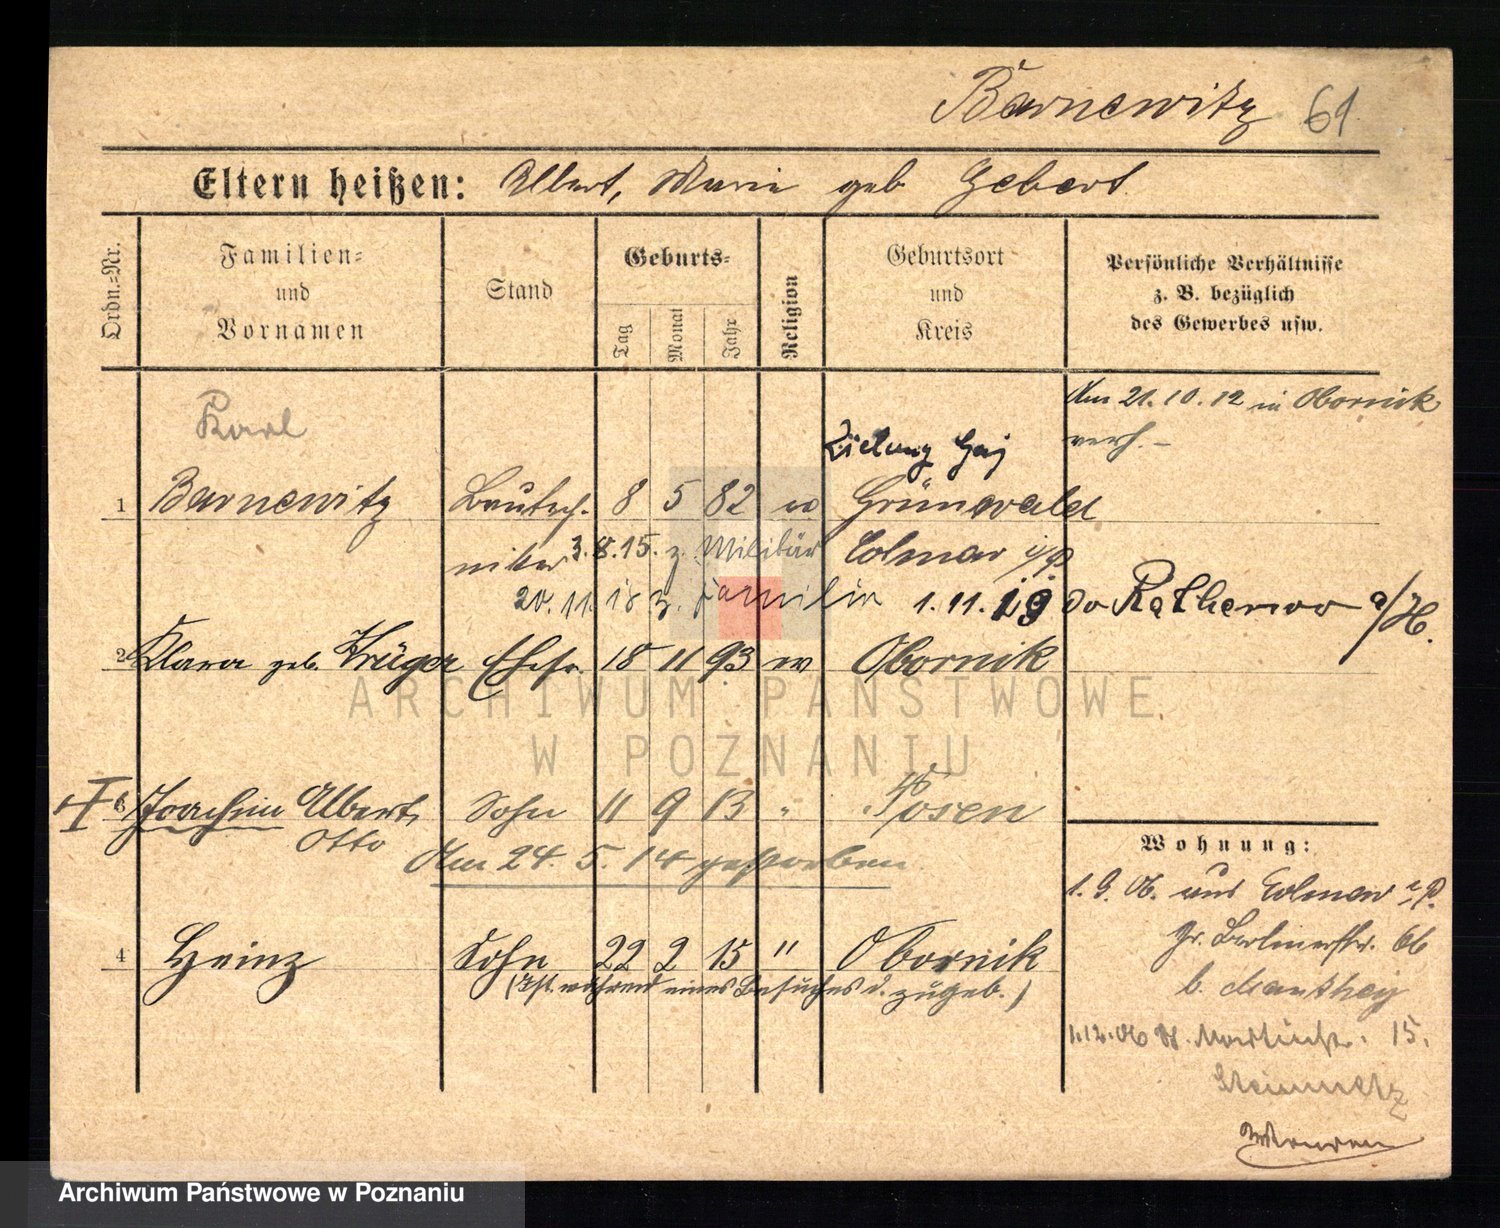 Barnewitz 61
Eltern heißen: Albert, Marie geb Gebert.
Ordn.-Nr.
Familien-
und
Vornamen
Stand
Geburts-
Tag
Monat
Jahr
Religion
Geburtsort
und
Kreis
Persönliche Verhältnisse
z. B. bezüglich
des Gewerbes usw.
Am 21.10.12 in Obornik
verh. –
Karl
Zielony Gaj
1 Barnewitz Bautech- 8 5 82 ev Grünwald
niker 3.8.15. z. Militär Colmar i/P
20.11.18 z. Familie 1.11.19 do Rathenow a/H.
2 Klara geb. Krüger Ehefr. 18 11 93 ev Obornik
3 Joachim Albert Sohn 11 9 13 " Posen
Otto
Am 24. 5. 14 gestorben.
4 Heinz Sohn 22 2 15 " Obornik
(Ist während eines Besuches d. zugeb.)
Wohnung:
1.9.06. aus Colmar i. P.
Gr. Berlinerstr. 66
b. Manthey
1.12.06 St. Martinstr. 15.
Steinmetz
Wenden
ARCHIWUM PAŃSTWOWE
W POZNANIU
Archiwum Państwowe w Poznaniu